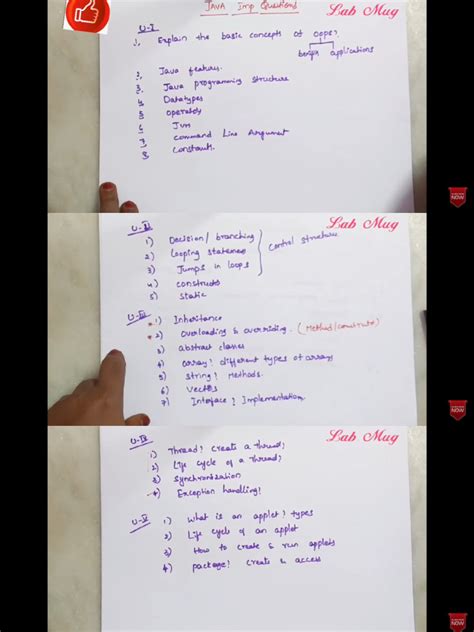 JAVA Imp Questions
Lab Mug
U-I
1, Explain the basic concepts of oops?
benefits applications
2, Java features.
3. Java programming structure
4 Datatypes
5 operators
6 Jvm
7 Command Line Argument
8 Constants.
NOW
Lab Mug
U-II
1) Decision/ branching
2) Looping statements
3) Jumps in loops
Control structure
4) constructs
5) static
U-III
*1) Inheritance
*2) overloading & overriding. (Method/constructs)
3) abstract classes
4) array? different types of arrays
5) string? Methods.
6) Vectors
7) Interface? Implementation
NOW
Lab Mug
U-IV
1) Thread? create a thread?
2) Life cycle of a Thread?
3) Synchronization
Exception handling?
U-V
1) what is an applet? types
2) Life cycle of an applet
3) How to create & run applets
4) package? create & access
NOW